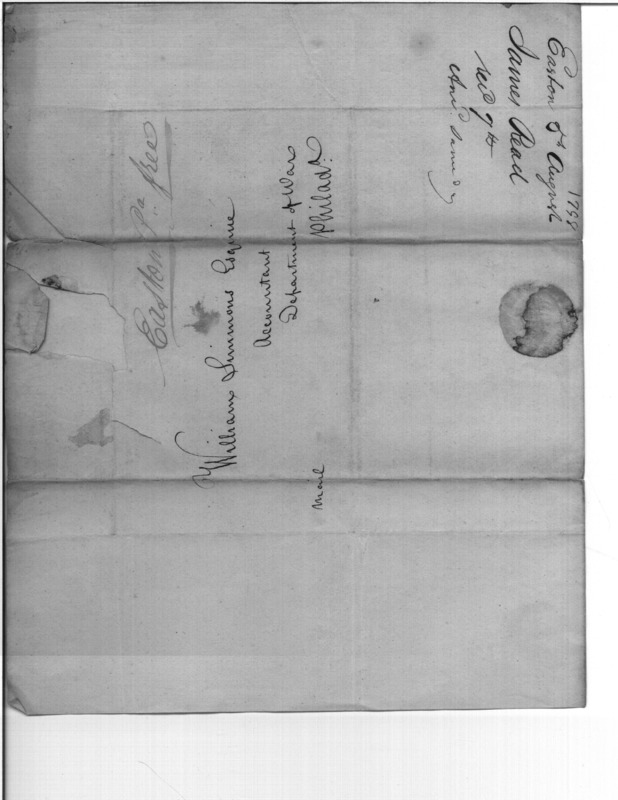 Easton Pa. free
William Simmons Esquire
Accountant
Department of War
Philada.
Mail
Easton 5th August 1798
James Read
recd 9th